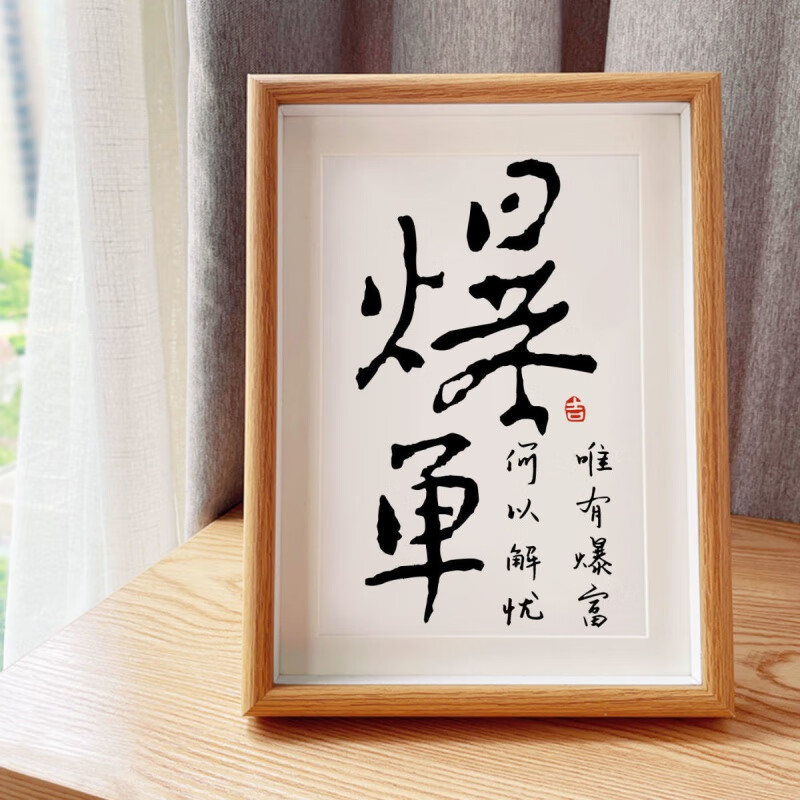 爆单
何以解忧
唯有爆富
吉